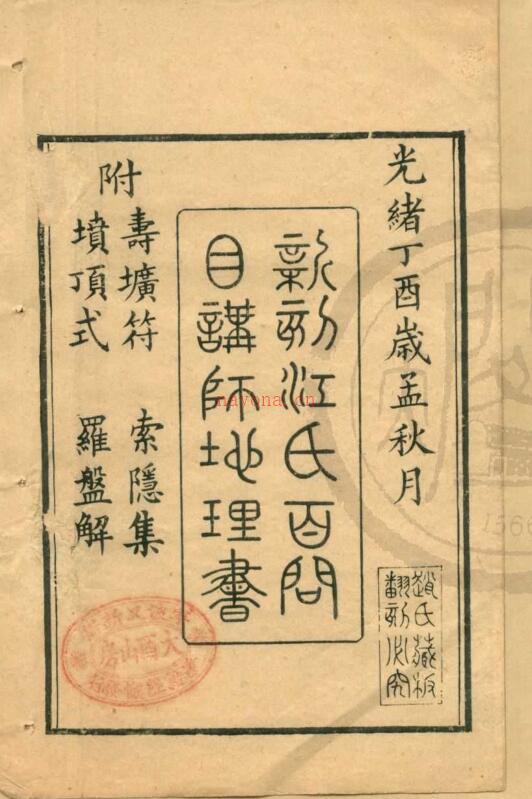 光緒丁酉歲孟秋月
趙氏藏板
翻刻必究
新刻江氏百問
目講師地理書
附
壽壙符 索隱集
墳頂式 羅盤解
大酉山房
nayona.cn
1566